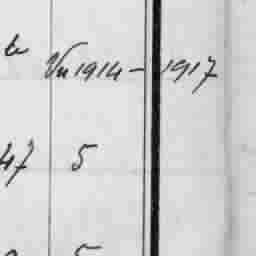 Vu 1914 - 1917
47 5
5